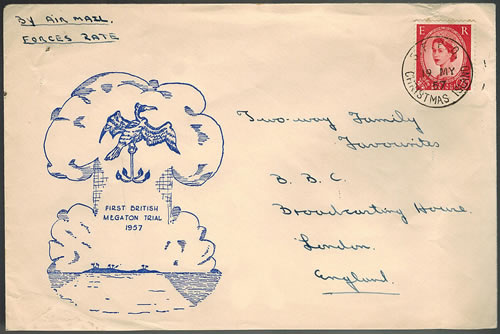 BY AIR MAIL.
FORCES RATE
E R
19 MY
57
CHRISTMAS ISLAND
Two-way Family
Favourites
B. B. C.
Broadcasting House.
London.
England.
FIRST BRITISH
MEGATON TRIAL
1957